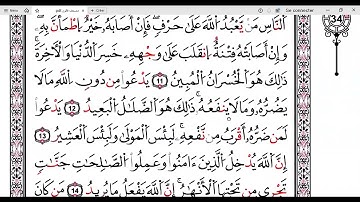 Se connecter
34
اَلنَّاسِ مَنْ يَّعْبُدُ اُللَّهَ عَلَىٰ حَرْفٍ فَإِنْ أَصَابَهُ خَيْرٌ اِطْمَأَنَّ بِهِ
وَإِنْ أَصَابَتْهُ فِتْنَةٌ اِنقَلَبَ عَلَىٰ وَجْهِهِ خَسِرَ اَلدُّنْيَا وَالَاخِرَةَ
ذَٰلِكَ هُوَ اَلْخُسْرَانُ اُلْمُبِينُ 11 يَدْعُوا مِن دُونِ اِللَّهِ مَا لَا
يَضُرُّهُ وَمَا لَا يَنفَعُهُ ذَٰلِكَ هُوَ اَلضَّلَالُ اُلْبَعِيدُ 12 يَدْعُوا
لَمَن ضَرُّهُ أَقْرَبُ مِن نَّفْعِهِ لَبِئْسَ اَلْمَوْلَىٰ وَلَبِئْسَ اَلْعَشِيرُ 13
إِنَّ اَللَّهَ يُدْخِلُ اُلَّذِينَ ءَامَنُوا وَعَمِلُوا اُلصَّالِحَاتِ جَنَّاتٍ
تَجْرِي مِن تَحْتِهَا اَلَانْهَارُ إِنَّ اَللَّهَ يَفْعَلُ مَا يُرِيدُ 14 مَن كَانَ